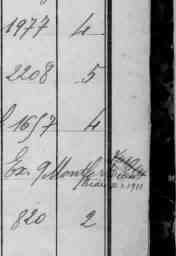 1977 4
2208 5
1657 4
Ex. 9 Months
1911
820 2